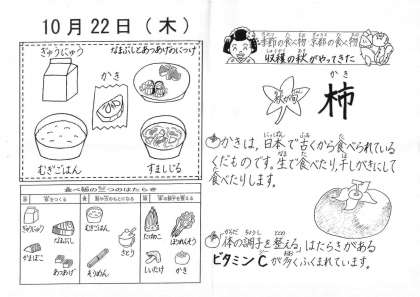 10月22日（木）
ぎゅうにゅう
なまぶしとあつあげのにつけ
かき
むぎごはん
すましじる
食べ物の三つのはたらき
ぎゅうにゅう
なまぶし
かまぼこ
あつあげ
むぎごはん
さとう
そうめん
たけのこ
ほうれんそう
しいたけ
かき
季節の食べ物 京都の食べ物
収穫の秋がやってきた
秋が旬
かき
柿
かきは、日本で古くから食べられている
くだものです。生で食べたり、干しがきにして
食べたりします。
「体の調子を整える」はたらきがある
ビタミンCが多くふくまれています。